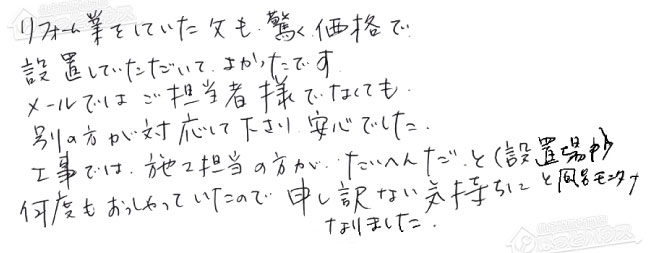 リフォーム業をしていた父も、驚く価格で
設置していただいて、よかったです
メールではご担当者様でなくても、
別の方が対応して下さり、安心でした。
工事では、施工担当の方が、たいへんだ、と(設置場所
と風呂モニタ
何度もおっしゃっていたので申し訳ない気持ちに
なりました。